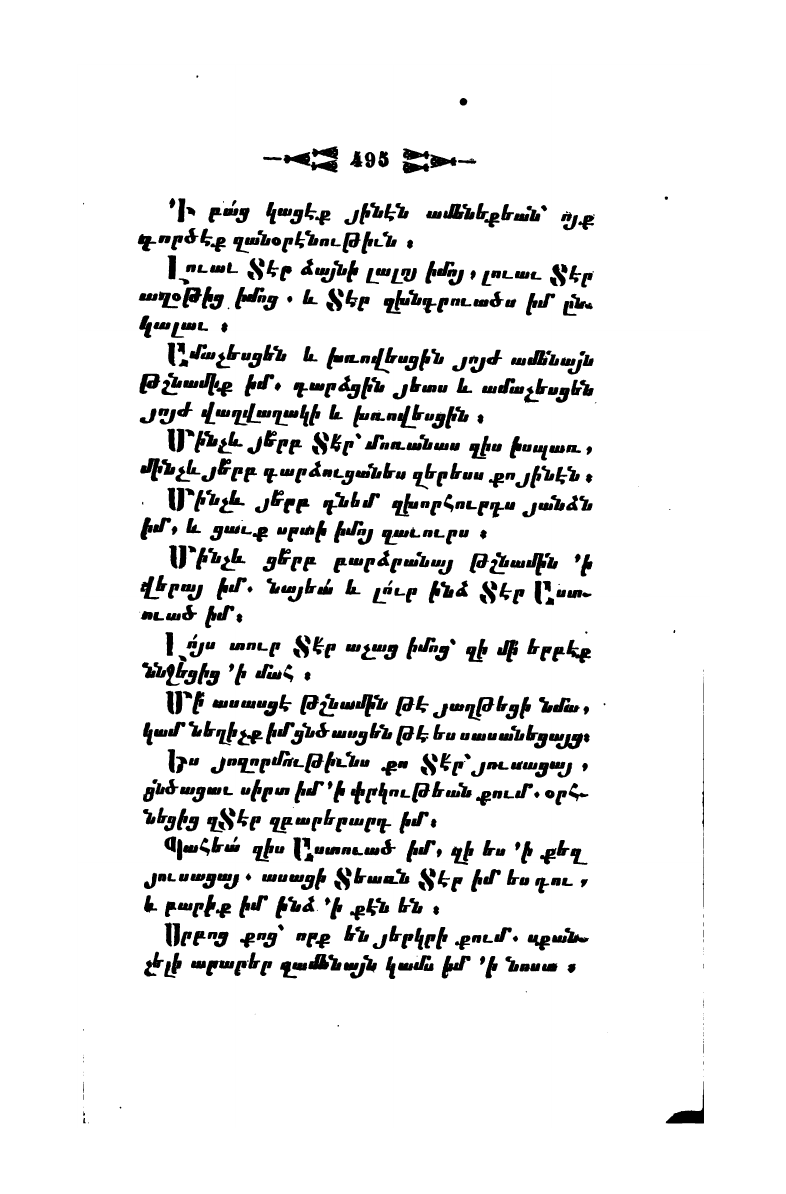 495
՚Ի բա՛ց կացէք յինէն ամենեքեան՝ ո՛յք
գործէք զանօրէնութիւն ։
Լուաւ Տէր ձայնի լալոյ իմոյ, լուաւ Տէր
աղօթից իմոց . և Տէր զխնդրուածս իմ ըն֊
կալաւ ։
Ամաչեսցեն և խռովեսցին յոյժ ամենայն
թշնամիք իմ. դարձցին յետս և ամաչեսցեն
յոյժ վաղվաղակի և խռովեսցին ։
Մինչև յե՞րբ Տէր՝ մոռանաս զիս իսպառ,
մինչև յե՞րբ դարձուցանես զերեսս քո յինէն ։
Մինչև յե՞րբ դնեմ զխորհուրդս յանձն
իմ, և ցաւք սրտի իմոյ զաւուրս ։
Մինչև ցե՞րբ բարձրանայ թշնամին ՚ի
վերայ իմ. նայեա՛ և լո՛ւր ինձ Տէր Աստ֊
ուած իմ։
Լո՛յս տուր Տէ՛ր աչաց իմոց՝ զի մի՛ երբէք
ննջեցից ՚ի մահ ։
Մի՛ ասասցէ թշնամին թէ յաղթեցի նմա,
կամ նեղիչք իմ ցնծասցեն թէ ես սասանեցայց։
Ես յողորմութիւնս քո Տէ՛ր՝ յուսացայ ,
ցնծացաւ սիրտ իմ ՚ի փրկութեան քում. օրհ֊
նեցից զՏէր զբարերարդ իմ։
Պահեա՛ զիս Աստուած իմ, զի ես ՚ի քեզ
յուսացայ . ասացի Տեառն Տէր իմ ես դու ,
և բարիք իմ ինձ ՚ի քէն են ։
Սրբոց քոց՝ որք են յերկրի քում. սքան֊
չելի արարեր զամենայն կամս իմ ՚ի նոսա ։